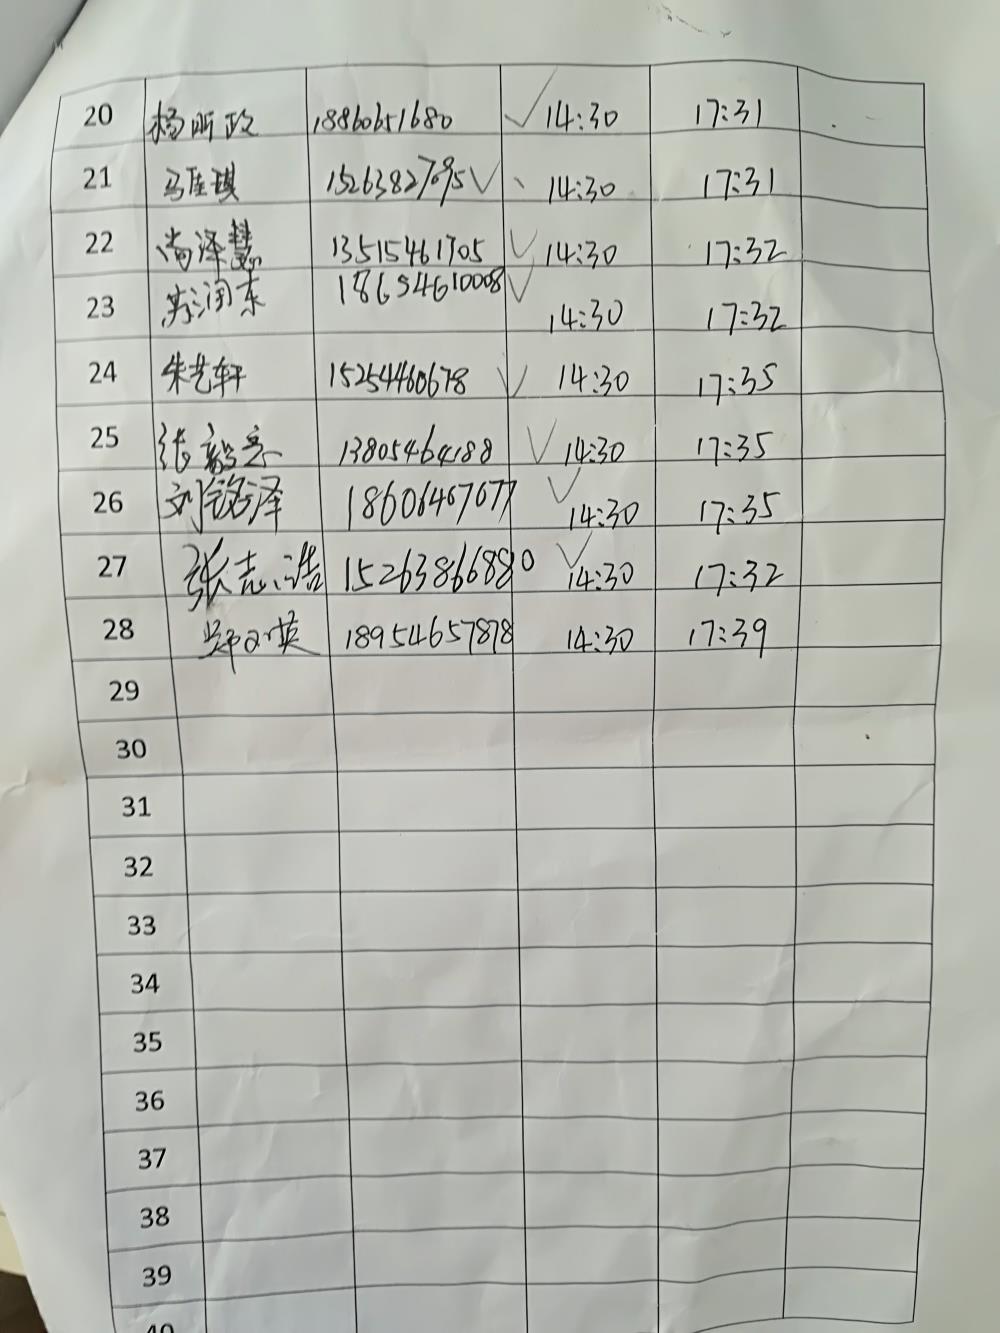 20 杨昕政 18860651680 ✓ 14:30 17:31
21 马佳琪 15263827695 ✓ 14:30 17:31
22 尚泽慧 13515461705 ✓ 14:30 17:32
23 苏润东 18654610008 ✓ 14:30 17:32
24 朱艺轩 15254460678 ✓ 14:30 17:35
25 张毅 13805464188 ✓ 14:30 17:35
26 刘铭泽 18606467677 ✓ 14:30 17:35
27 张志浩 15263866880 ✓ 14:30 17:32
28 18954657878 14:30 17:39
29
30
31
32
33
34
35
36
37
38
39
40